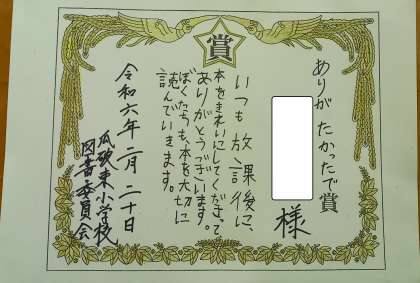 賞
ありがたかったで賞
様
いつも放課後に、
本をきれいにしてくださって
ありがとうございます。
ぼくたちも、本を大切に
読んでいきます。
令和六年二月二十日
瓜破東小学校
図書委員会